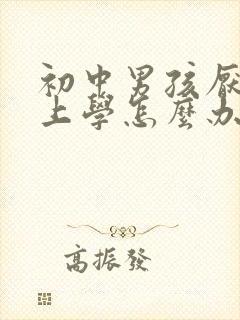 初中男孩厭
上學怎麼办
高振發